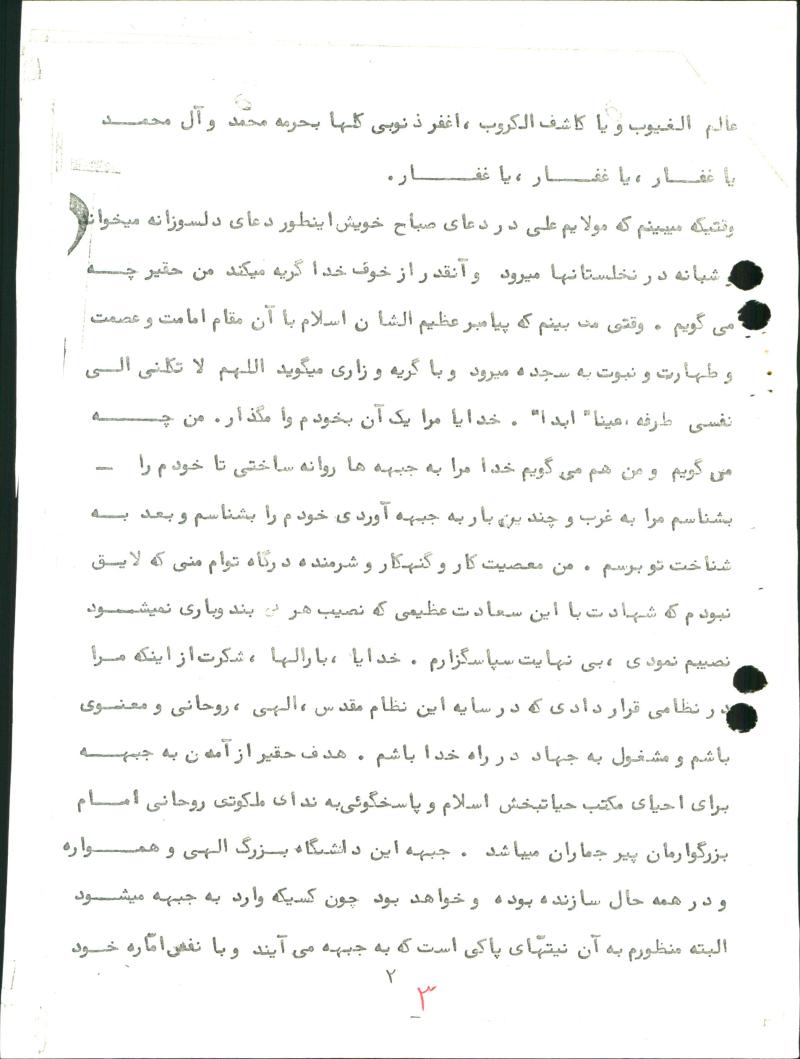 عالم الغیوب و یا کاشف الکروب ،اغفر ذنوبی کلها بحرمه محمّد و آل محمد
یا غفار ،یا غفار ،یا غفار.
وقتیکه میبینم که مولایم علی در دعای صباح خویش اینطور دعای دلسوزانه میخواند
و شبانه در نخلستانها میرود و آنقدر از خوف خدا گریه میکند من حقیر چه
می گویم . وقتی می بینم که پیامبر عظیم الشان اسلام با آن مقام امامت و عصمت
و طهارت و نبوت به سجده میرود و با گریه و زاری میگوید اللهم لا تکلنی الی
نفسی طرفه ،عینا" ابدا" . خدایا مرا یک آن بخودم وا مگذار. من چه
می گویم و من هم می گویم خدا مرا به جبهه ها روانه ساختی تا خودم را –
بشناسم مرا به غرب و چندین بار به جبهه آوردی خودم را بشناسم و بعد به
شناخت تو برسم . من معصیت کار و گنهکار و شرمنده درگاه توام منی که لایق
نبودم که شهادت با این سعادت عظیمی که نصیب هر بی بندوباری نمیشود
نصیبم نمودی ،بی نهایت سپاسگزارم . خدایا ،بارالها ،شکرت از اینکه مرا
در نظامی قرار دادی که در سایه این نظام مقدس ،الهی ،روحانی و معنوی
باشم و مشغول به جهاد در راه خدا باشم . هدف حقیر از آمدن به جبهه
برای احیای مکتب حیاتبخش اسلام و پاسخگوئی به ندای ملکوتی روحانی امام
بزرگوارمان پیر جماران میباشد . جبهه این دانشگاه بزرگ الهی و همواره
و در همه حال سازنده بوده و خواهد بود چون کسیکه وارد به جبهه میشود
البته منظورم به آن نیتهّای پاکی است که به جبهه می آیند و با نفس امّاره خود
۲
۳